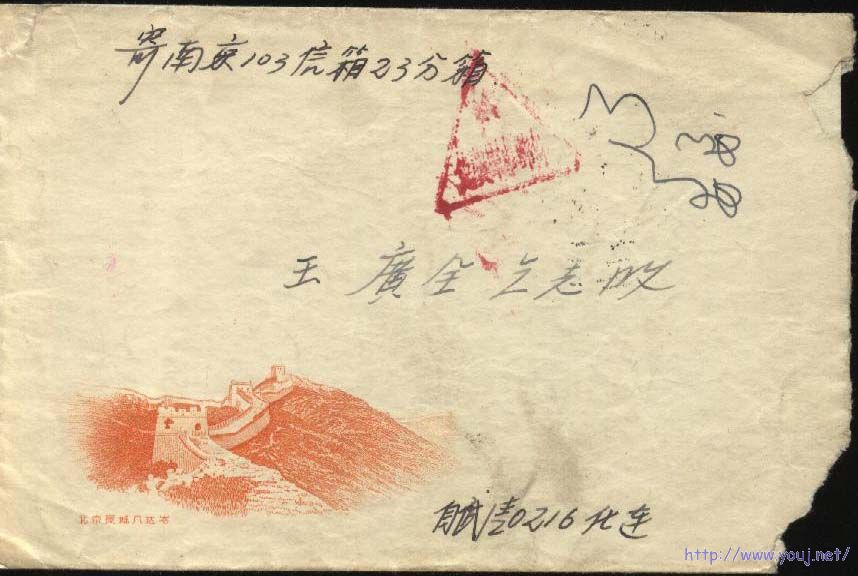 寄南京103信箱23分箱
王廣全仝志收
北京長城八达岺
0216化连
http://www.youj.net/